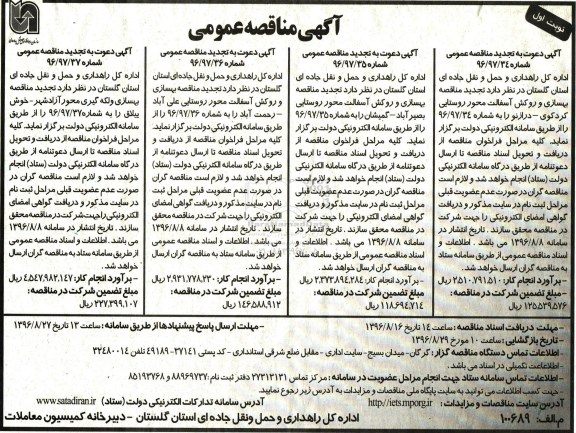 نوبت اول
آگهی مناقصه عمومی
آگهی دعوت به تجدید مناقصه عمومی
شماره ۹۶/۹۷/۳۴
اداره کل راهداری و حمل و نقل جاده ای
استان گلستان در نظر دارد تجدید مناقصه
بهسازی و روکش آسفالت محور روستایی
کردکوی - درازنو را به شماره ۹۶/۹۷/۳۴
را از طریق سامانه الکترونیکی دولت برگزار
نماید. کلیه مراحل فراخوان مناقصه از
دریافت و تحویل اسناد مناقصه تا ارسال
دعوتنامه از طریق درگاه سامانه الکترونیکی
دولت (ستاد) انجام خواهد شد و لازم است
مناقصه گران در صورت عدم عضویت قبلی
مراحل ثبت نام در سایت مذکور و دریافت
گواهی امضای الکترونیکی را جهت شرکت
در مناقصه محقق سازند. تاریخ انتشار در
سامانه ۱۳۹۶/۸/۸ می باشد. اطلاعات و
اسناد مناقصه عمومی از طریق سامانه ستاد
به مناقصه گران ارسال خواهد شد.
- برآورد انجام کار: ۲.۵۱۰.۷۹۱.۵۱۰ ریال
مبلغ تضمین شرکت در مناقصه:
۱۲۵۵۳۹۵۷۶ ریال
آگهی دعوت به تجدید مناقصه عمومی
شماره ۹۶/۹۷/۳۵
اداره کل راهداری و حمل و نقل جاده ای
استان گلستان در نظر دارد تجدید مناقصه
بهسازی و روکش آسفالت محور روستایی
بصیرآباد - گمیشان را به شماره ۹۶/۹۷/۳۵
را از طریق سامانه الکترونیکی دولت برگزار
نماید. کلیه مراحل فراخوان مناقصه از دریافت
و تحویل اسناد مناقصه تا ارسال
دعوتنامه از طریق درگاه سامانه الکترونیکی
دولت (ستاد) انجام خواهد شد و لازم است
مناقصه گران در صورت عدم عضویت قبلی
مراحل ثبت نام در سایت مذکور و دریافت
گواهی امضای الکترونیکی را جهت شرکت
در مناقصه محقق سازند. تاریخ انتشار در
سامانه ۱۳۹۶/۸/۸ می باشد. اطلاعات و
اسناد مناقصه عمومی از طریق سامانه ستاد
به مناقصه گران ارسال خواهد شد.
- برآورد انجام کار: ۲.۳۷۳.۸۹۴.۲۸۴ ریال
مبلغ تضمین شرکت در مناقصه:
۱۱۸۶۹۴۷۱۴ ریال
آگهی دعوت به تجدید مناقصه عمومی
شماره ۹۶/۹۷/۳۶
اداره کل راهداری و حمل و نقل جاده ای استان
گلستان در نظر دارد تجدید مناقصه بهسازی
و روکش آسفالت محور روستایی علی آباد
- رحمت آباد را به شماره ۹۶/۹۷/۳۶ را از
طریق سامانه الکترونیکی دولت برگزار نماید.
کلیه مراحل فراخوان مناقصه از دریافت و
تحویل اسناد مناقصه تا ارسال دعوتنامه از
طریق درگاه سامانه الکترونیکی دولت (ستاد)
انجام خواهد شد و لازم است مناقصه گران در
صورت عدم عضویت قبلی مراحل ثبت نام
در سایت مذکور و دریافت گواهی امضای
الکترونیکی را جهت شرکت در مناقصه محقق
سازند. تاریخ انتشار در سامانه ۱۳۹۶/۸/۸
می باشد. اطلاعات و اسناد مناقصه عمومی
از طریق سامانه ستاد به مناقصه گران ارسال
خواهد شد.
- برآورد انجام کار: ۲.۹۳۱.۷۷۸.۲۳۰ ریال
مبلغ تضمین شرکت در مناقصه:
۱۴۶۵۸۸۹۱۲ ریال
آگهی دعوت به تجدید مناقصه عمومی
شماره ۹۶/۹۷/۳۷
اداره کل راهداری و حمل و نقل جاده ای
استان گلستان در نظر دارد تجدید مناقصه
بهسازی ولکه گیری محور آزادشهر - خوش
ییلاق را به شماره ۹۶/۹۷/۳۷ را از طریق
سامانه الکترونیکی دولت برگزار نماید. کلیه
مراحل فراخوان مناقصه از دریافت و تحویل
اسناد مناقصه تا ارسال دعوتنامه از طریق
درگاه سامانه الکترونیکی دولت (ستاد) انجام
خواهد شد و لازم است مناقصه گران در
صورت عدم عضویت قبلی مراحل ثبت نام
در سایت مذکور و دریافت گواهی امضای
الکترونیکی را جهت شرکت در مناقصه محقق
سازند. تاریخ انتشار در سامانه ۱۳۹۶/۸/۸
می باشد. اطلاعات و اسناد مناقصه عمومی
از طریق سامانه ستاد به مناقصه گران ارسال
خواهد شد.
- برآورد انجام کار: ۴.۵۴۷.۹۸۲.۱۴۷ ریال
مبلغ تضمین شرکت در مناقصه:
۲۲۷.۳۹۹.۱۰۷ ریال
- مهلت دریافت اسناد مناقصه: ساعت ۱۴ تاریخ ۱۳۹۶/۸/۱۶ - مهلت ارسال پاسخ پیشنهادها از طریق سامانه: ساعت ۱۳ تاریخ ۱۳۹۶/۸/۲۷
- تاریخ بازگشایی: ساعت ۱۰ مورخ ۱۳۹۶/۸/۲۹
- اطلاعات تماس دستگاه مناقصه گزار: گرگان - میدان بسیج - سایت اداری - مقابل ضلع شرقی استانداری - کد پستی ۳۷۱۴۱-۴۹۱۸۹ تلفن ۳۲۴۸۰۰۱۴
- اطلاعات تکمیلی در اسناد می باشد.
- اطلاعات تماس سامانه ستاد جهت انجام مراحل عضویت در سامانه: مرکز تماس ۲۷۳۱۳۱۳۱ دفتر ثبت نام: ۸۸۹۶۹۷۳۷ و ۸۵۱۹۳۷۶۸
- جهت کسب اطلاعات می توانید به سایت پایگاه ملی مناقصات و مزایدات به آدرس زیر رجوع نمایید.
آدرس سایت مناقصات و مزایدات: http://iets.mporg.ir آدرس سامانه تدارکات الکترونیکی دولت (ستاد) www.satadiran.ir
م.الف: ۱۰۰۶۸۹ اداره کل راهداری و حمل ونقل جاده ای استان گلستان - دبیرخانه کمیسیون معاملات